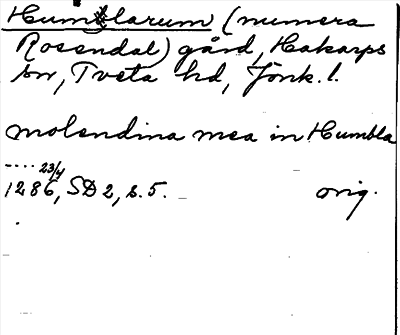 Humblarum (numera
Rosendal) gård, Hakarps
sn, Tveta hd, Jönk. l.
molendina mea in Humbla
---- 23/4
1286, SD 2, s. 5. orig.